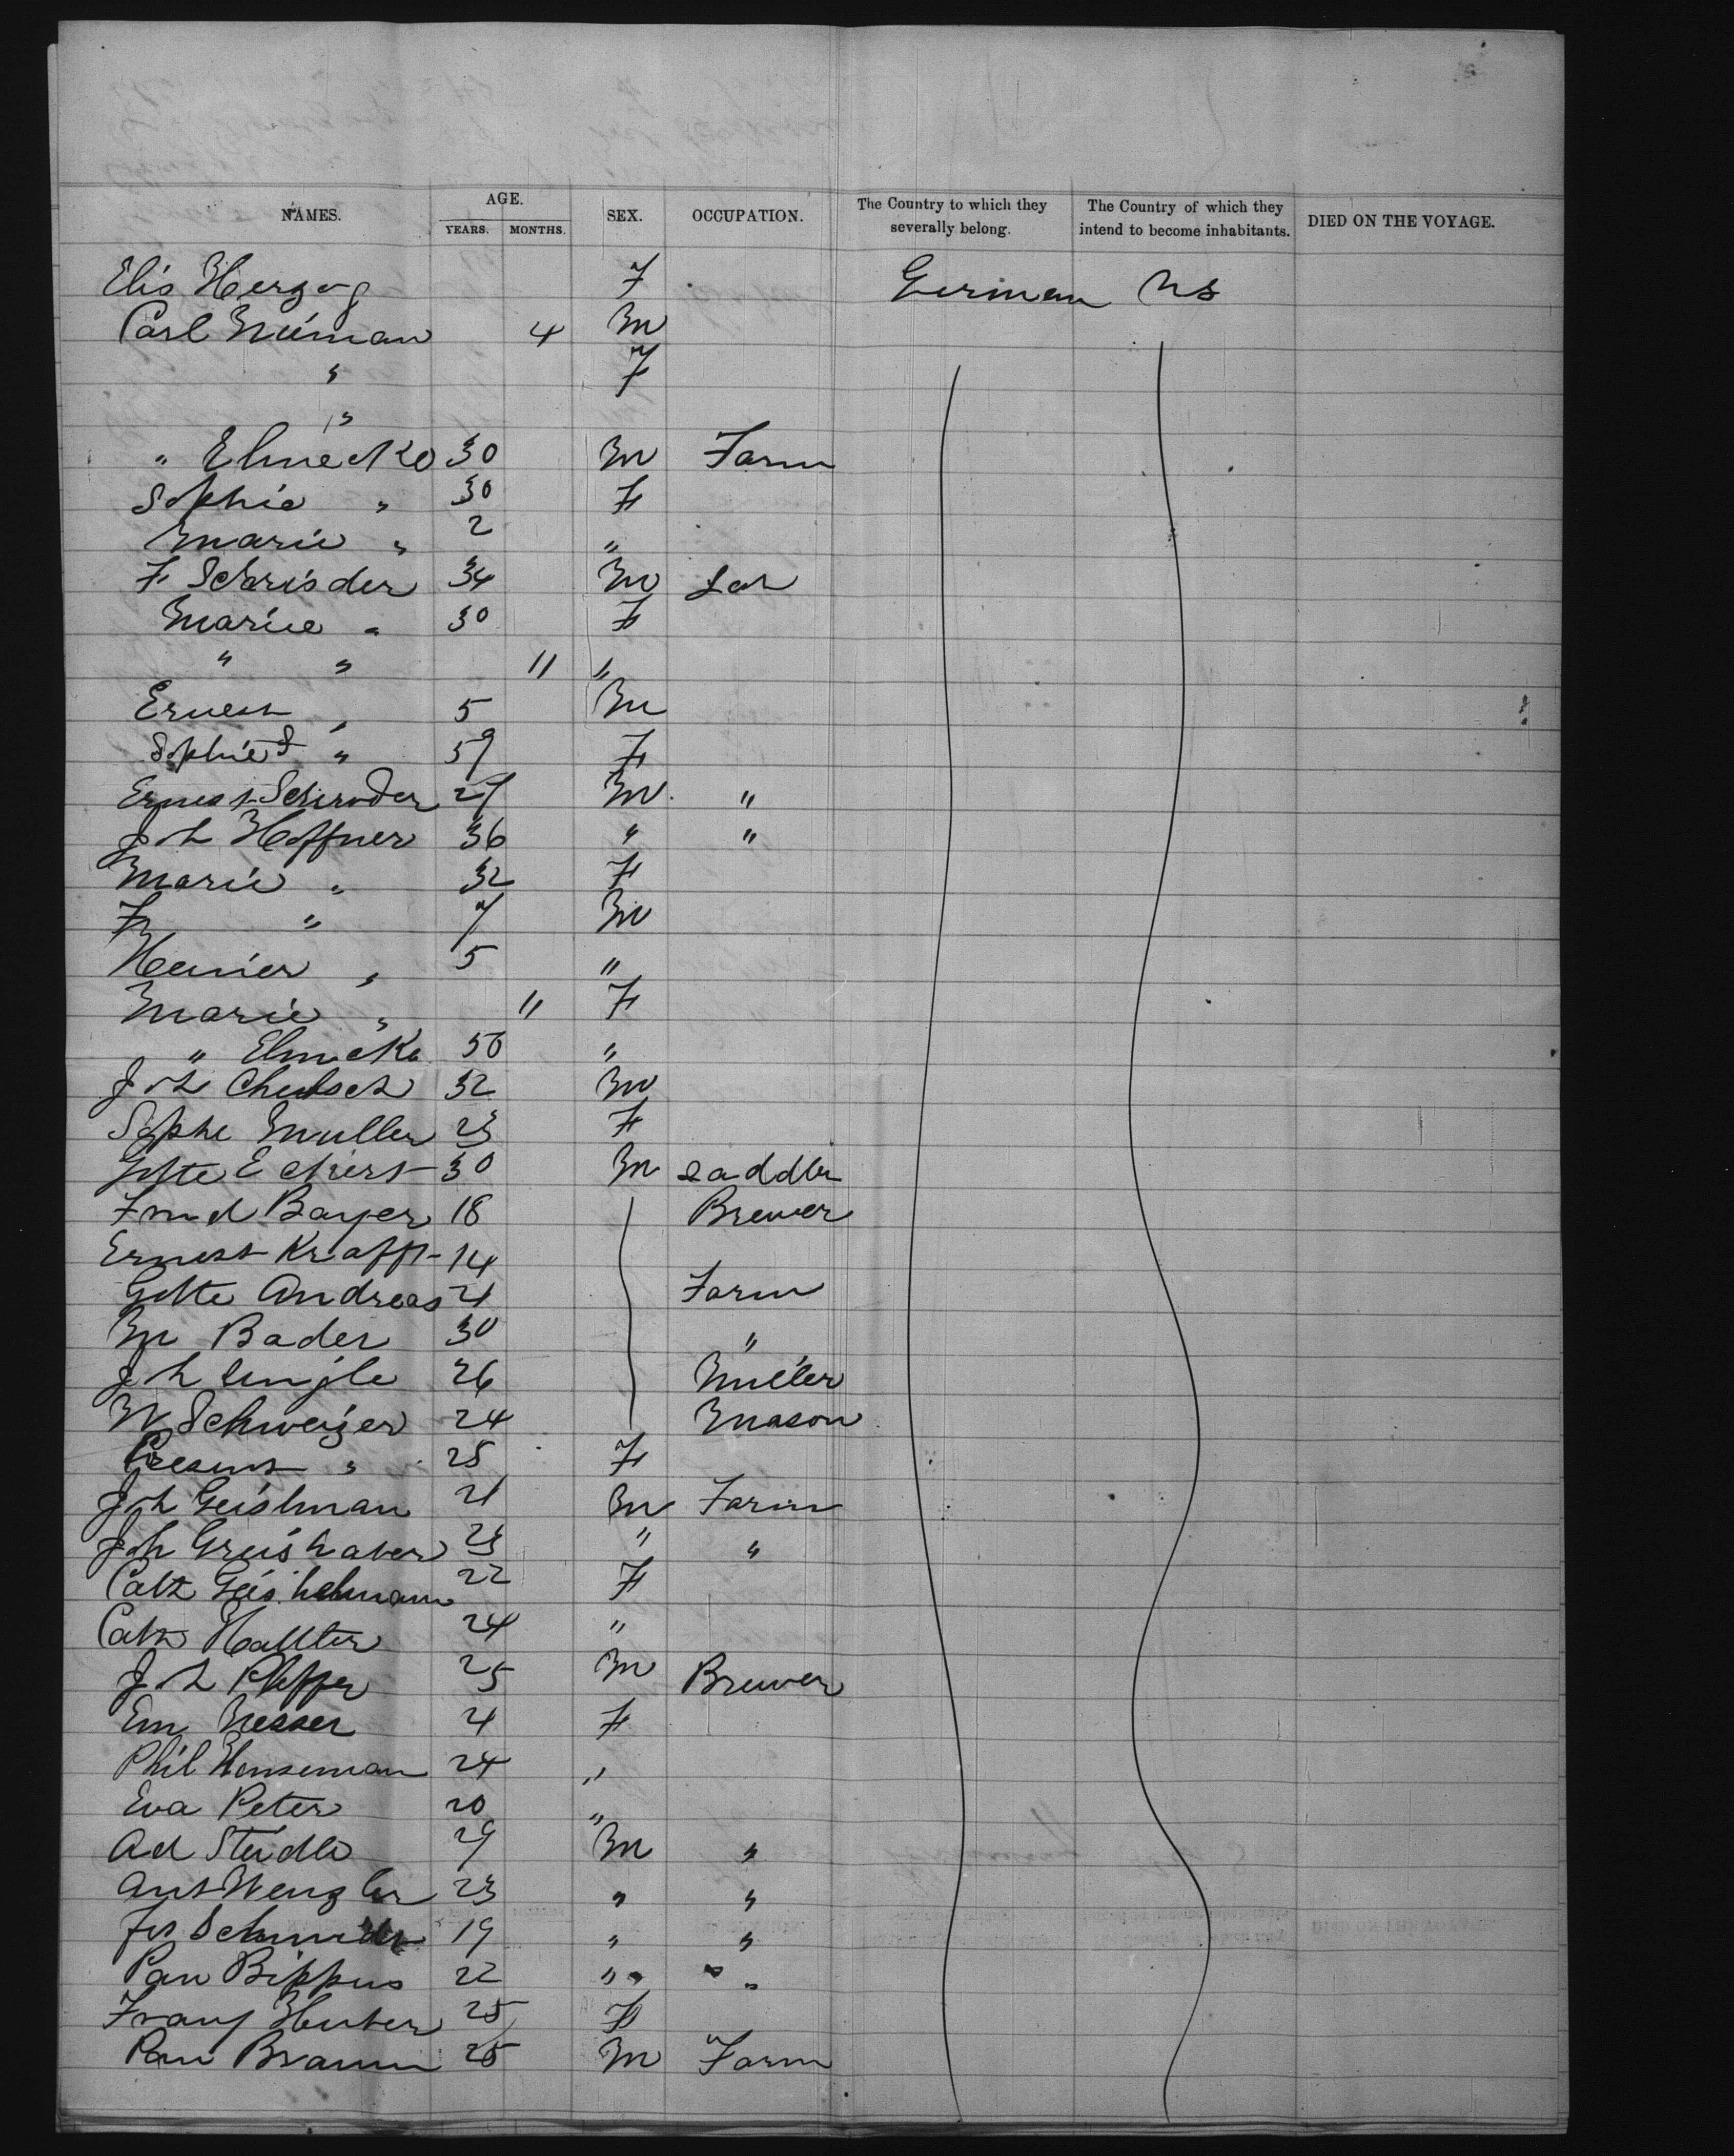 NAMES. AGE. YEARS. MONTHS. SEX. OCCUPATION. The Country to which they severally belong. The Country of which they intend to become inhabitants. DIED ON THE VOYAGE.
Elis Herzog F German US
Carl Neiman 4 M
" F
"
" Elmecke 30 M Farm
Sophie " 30 F
Marie " 2 "
F Schrisder 34 M Lab
Marie " 30 F
" " 11 "
Ernest " 5 M
Sophie " 59 F
Ernest Schroder 27 M "
Joh Hoffner 36 " "
Marie " 32 F
Fr " 7 M
Heinier " 5 "
Marie " 11 F
" Elmecke 56 "
Joh 32 M
Sophe Muller 23 F
Gotte Eckerst 30 M Saddler
Frid Bayer 18 Brewer
Ernest Krafft 14
Gotte Andreas 21 Farm
M Bader 30 "
Joh 26 Miller
W Schweizer 24 Mason
Cresens " 25 F
Joh Geishman 21 M Farm
Joh Greishaber 23 " "
Cath Geishelmann 22 F
Cath Hallter 24 "
Joh Pfeffer 25 M Brewer
Em Messer 4 F
Phil Henseman 24 "
Eva Peter 20 "
Ad Steidle 29 M "
Ant Wenzler 23 " "
Jos Schmider 19 " "
Pau Bippus 22 " "
Franz Huber 25 F
Pau Braunn 25 M Farm